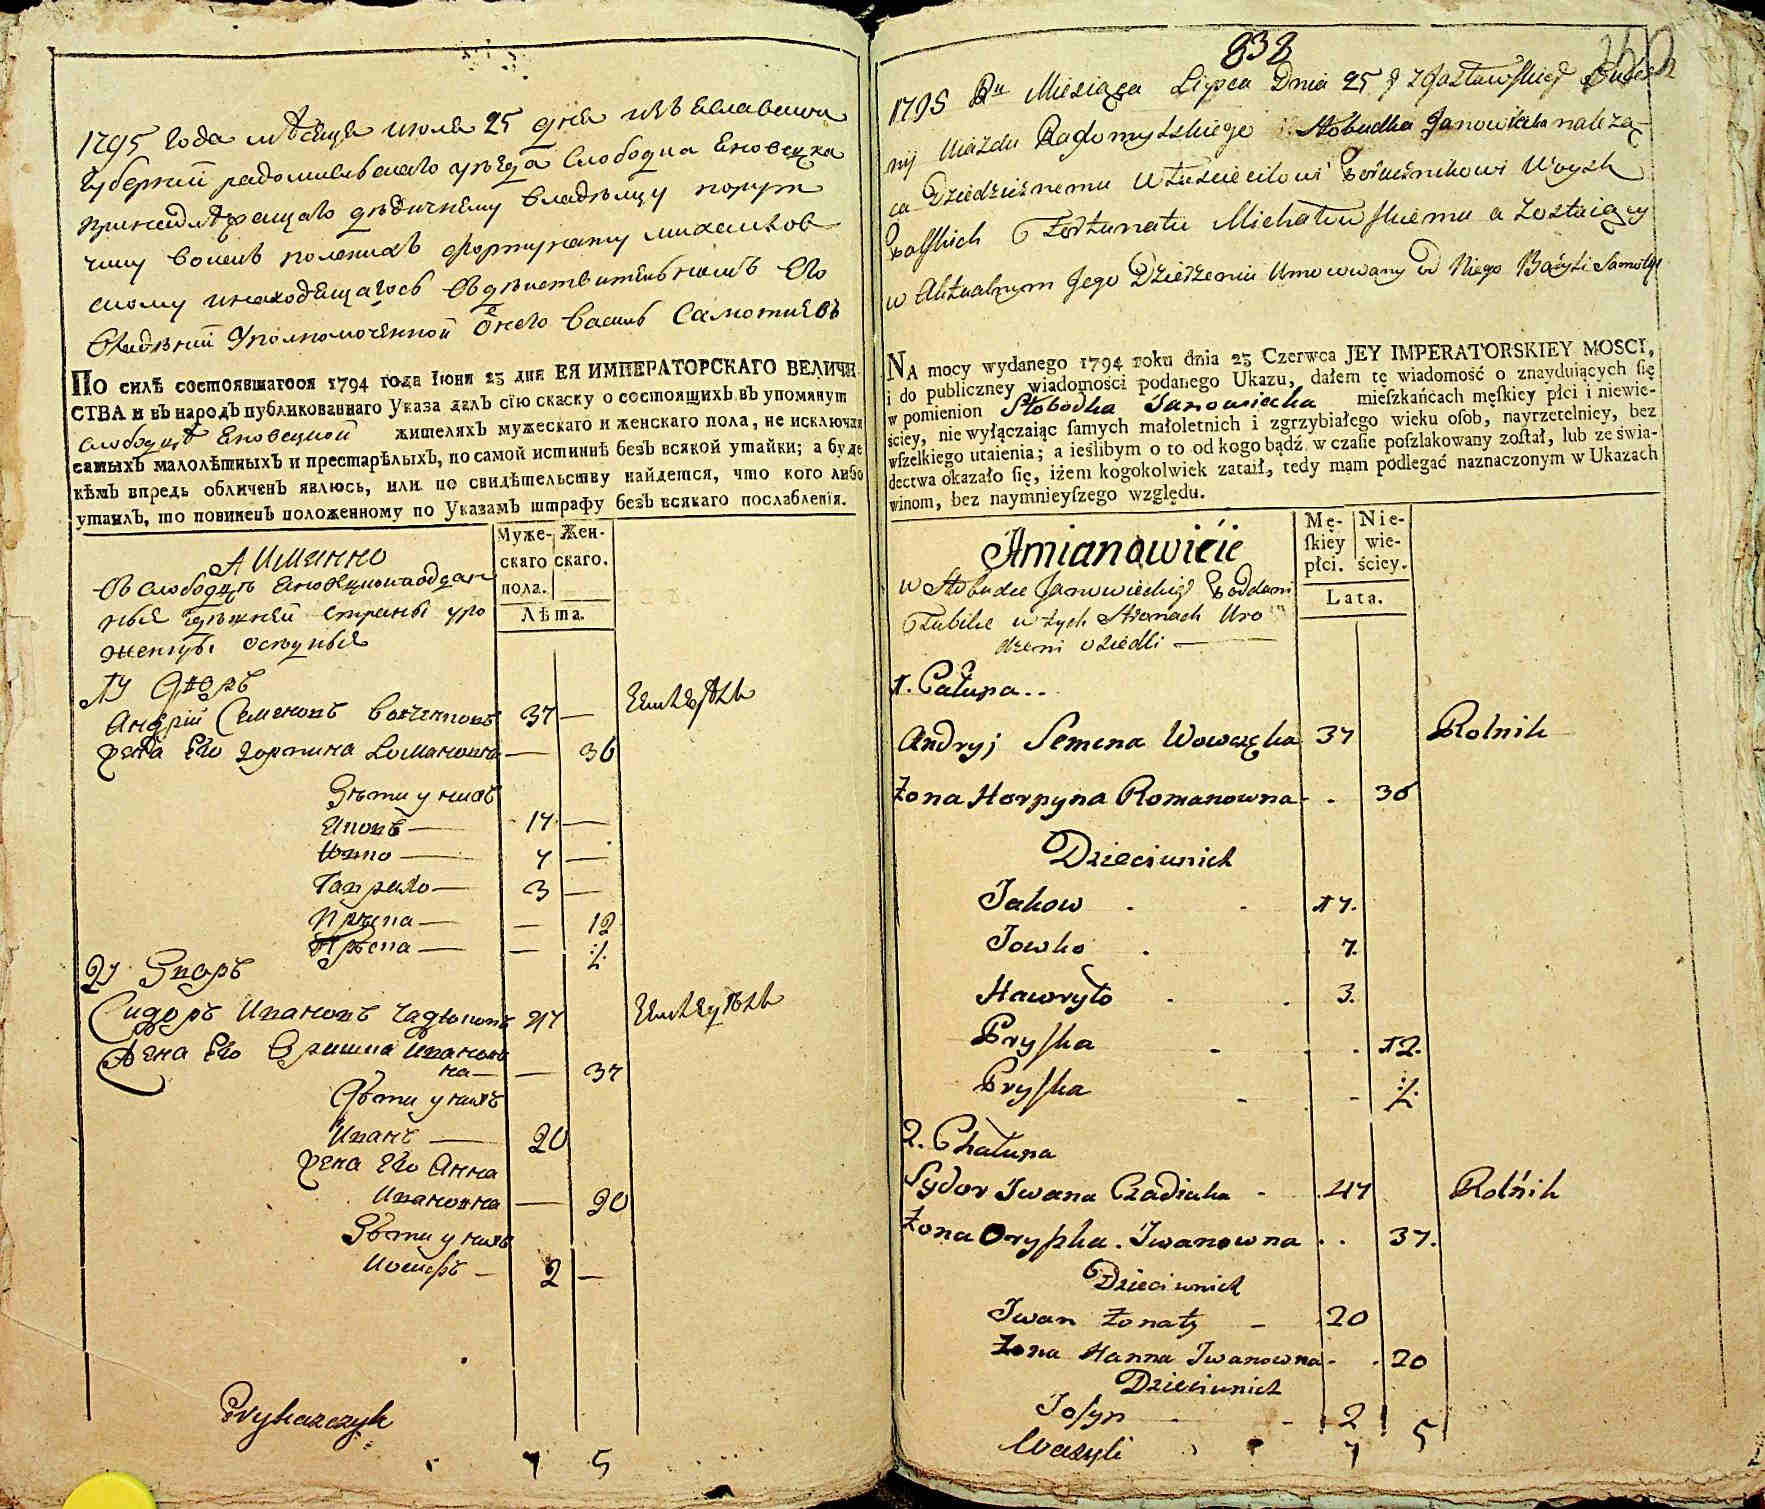 1795 года мѣсяца июля 25 дня изъ Еславской
Губерний радомисльскаго уѣзда Слободка Еновецка
принадлежащаго дѣдичнему владѣлцу поруч
чику воискъ полскихъ фортунату михалков
скому инаходящагось въдѣиствителномъ Его
владѣнии Уполномоченной Онего василь Самотиевъ
ПО силѣ состоявшагося 1794 года Іюни 23 дня ЕЯ ИМПЕРАТОРСКАГО ВЕЛИЧЕ
СТВА и въ народъ публикованнаго Указа далъ сїю скаску о состоящихъ въ упомянут
слободцѣ Еновецкой жителяхъ мужескаго и женскаго пола, не исключая
самыхъ малолѣтныхъ и престарѣлыхъ, по самой истиннѣ безъ всякой утайки; а буде
кѣмъ впредь обличенъ явлюсь, или по свидѣтельству найдется, что кого либо
утаилъ, то повиненъ положенному по Указамъ штрафу безъ всякаго послабленія.
Муже- Жен-
скаго скаго.
пола.
Лѣта.
А Именно
Въ слободцѣ
роженцы осѣдные
1й Дворъ
Андрій Семеновъ 37 —
жена Его горпина Романовна — 36
Дѣти у нихъ
Яковъ — 17 —
Ювко — 7 —
Гаврило — 3 —
Прѣска — — 12
Прѣска — — ½
2й Дворъ
Сидоръ Ивановъ чадюковъ 47
Жена Его Оришка Иванов
на — — 37
Дѣти у нихъ
Иванъ — 20
жена Его Анна
Ивановна — 20
Дѣти у нихъ
Иосифъ — 2 —
Prykazczyk
7 5
838
1795 Ru Miesiąca Lipca Dnia 25 z Jzasławskiey Guber
nij Uiazdu Radomyslskiego Słobudka Janowicka należą-
ca Dziedzicznemu Właścicielowi Porucznikowi Woysk
Polskich Fortunatu Michałowskiemu a zostaiący
w Aktualnym Jego Dzierżeniu Umocowany od Niego Bazyli Samoty
NA mocy wydanego 1794 roku dnia 23 Czerwca JEY IMPERATORSKIEY MOSCI,
i do publiczney wiadomości podanego Ukazu, dałem tę wiadomość o znayduiących się
w pomienion Słobodka Janowiecka mieſzkańcach męſkiey płci i niewie-
ściey, nie wyłączaiąc ſamych małoletnich i zgrzybiałego wieku oſob, nayrzetelniey, bez
wſzelkiego utaienia; a ieślibym o to od kogo bądź w czaſie poſzlakowany zoſtał, lub ze świa-
dectwa okazało ſię, iżem kogokolwiek zataił, tedy mam podlegać naznaczonym w Ukazach
winom, bez naymnieyſzego względu.
Mę- Nie-
ſkiey wie-
płci. ściey.
Lata.
Amianowicie
w Słobudce Janowieckiey Poddani
w tych Stronach Uro
dzeni osiedli —
1. Całupa..
Andryj Semena 37 Rolnik
Żona Horpyna Romanowna - . 36
Dzieci u nich
Jakow . . 17.
Jowko . 7.
Hawryło . . 3.
Pryſka - . . 12.
Pryſka - - ½.
2. Chałupa
Sydor Iwana Czadiuka - 47 Rolnik
Żona Oryſzka. Iwanowna . . 37.
Dzieci u nich
Iwan Żonaty - 20
Żona Hanna Iwanowna - . 20
Dzieci u nich
Josyp - 2
Wasyli 7 5